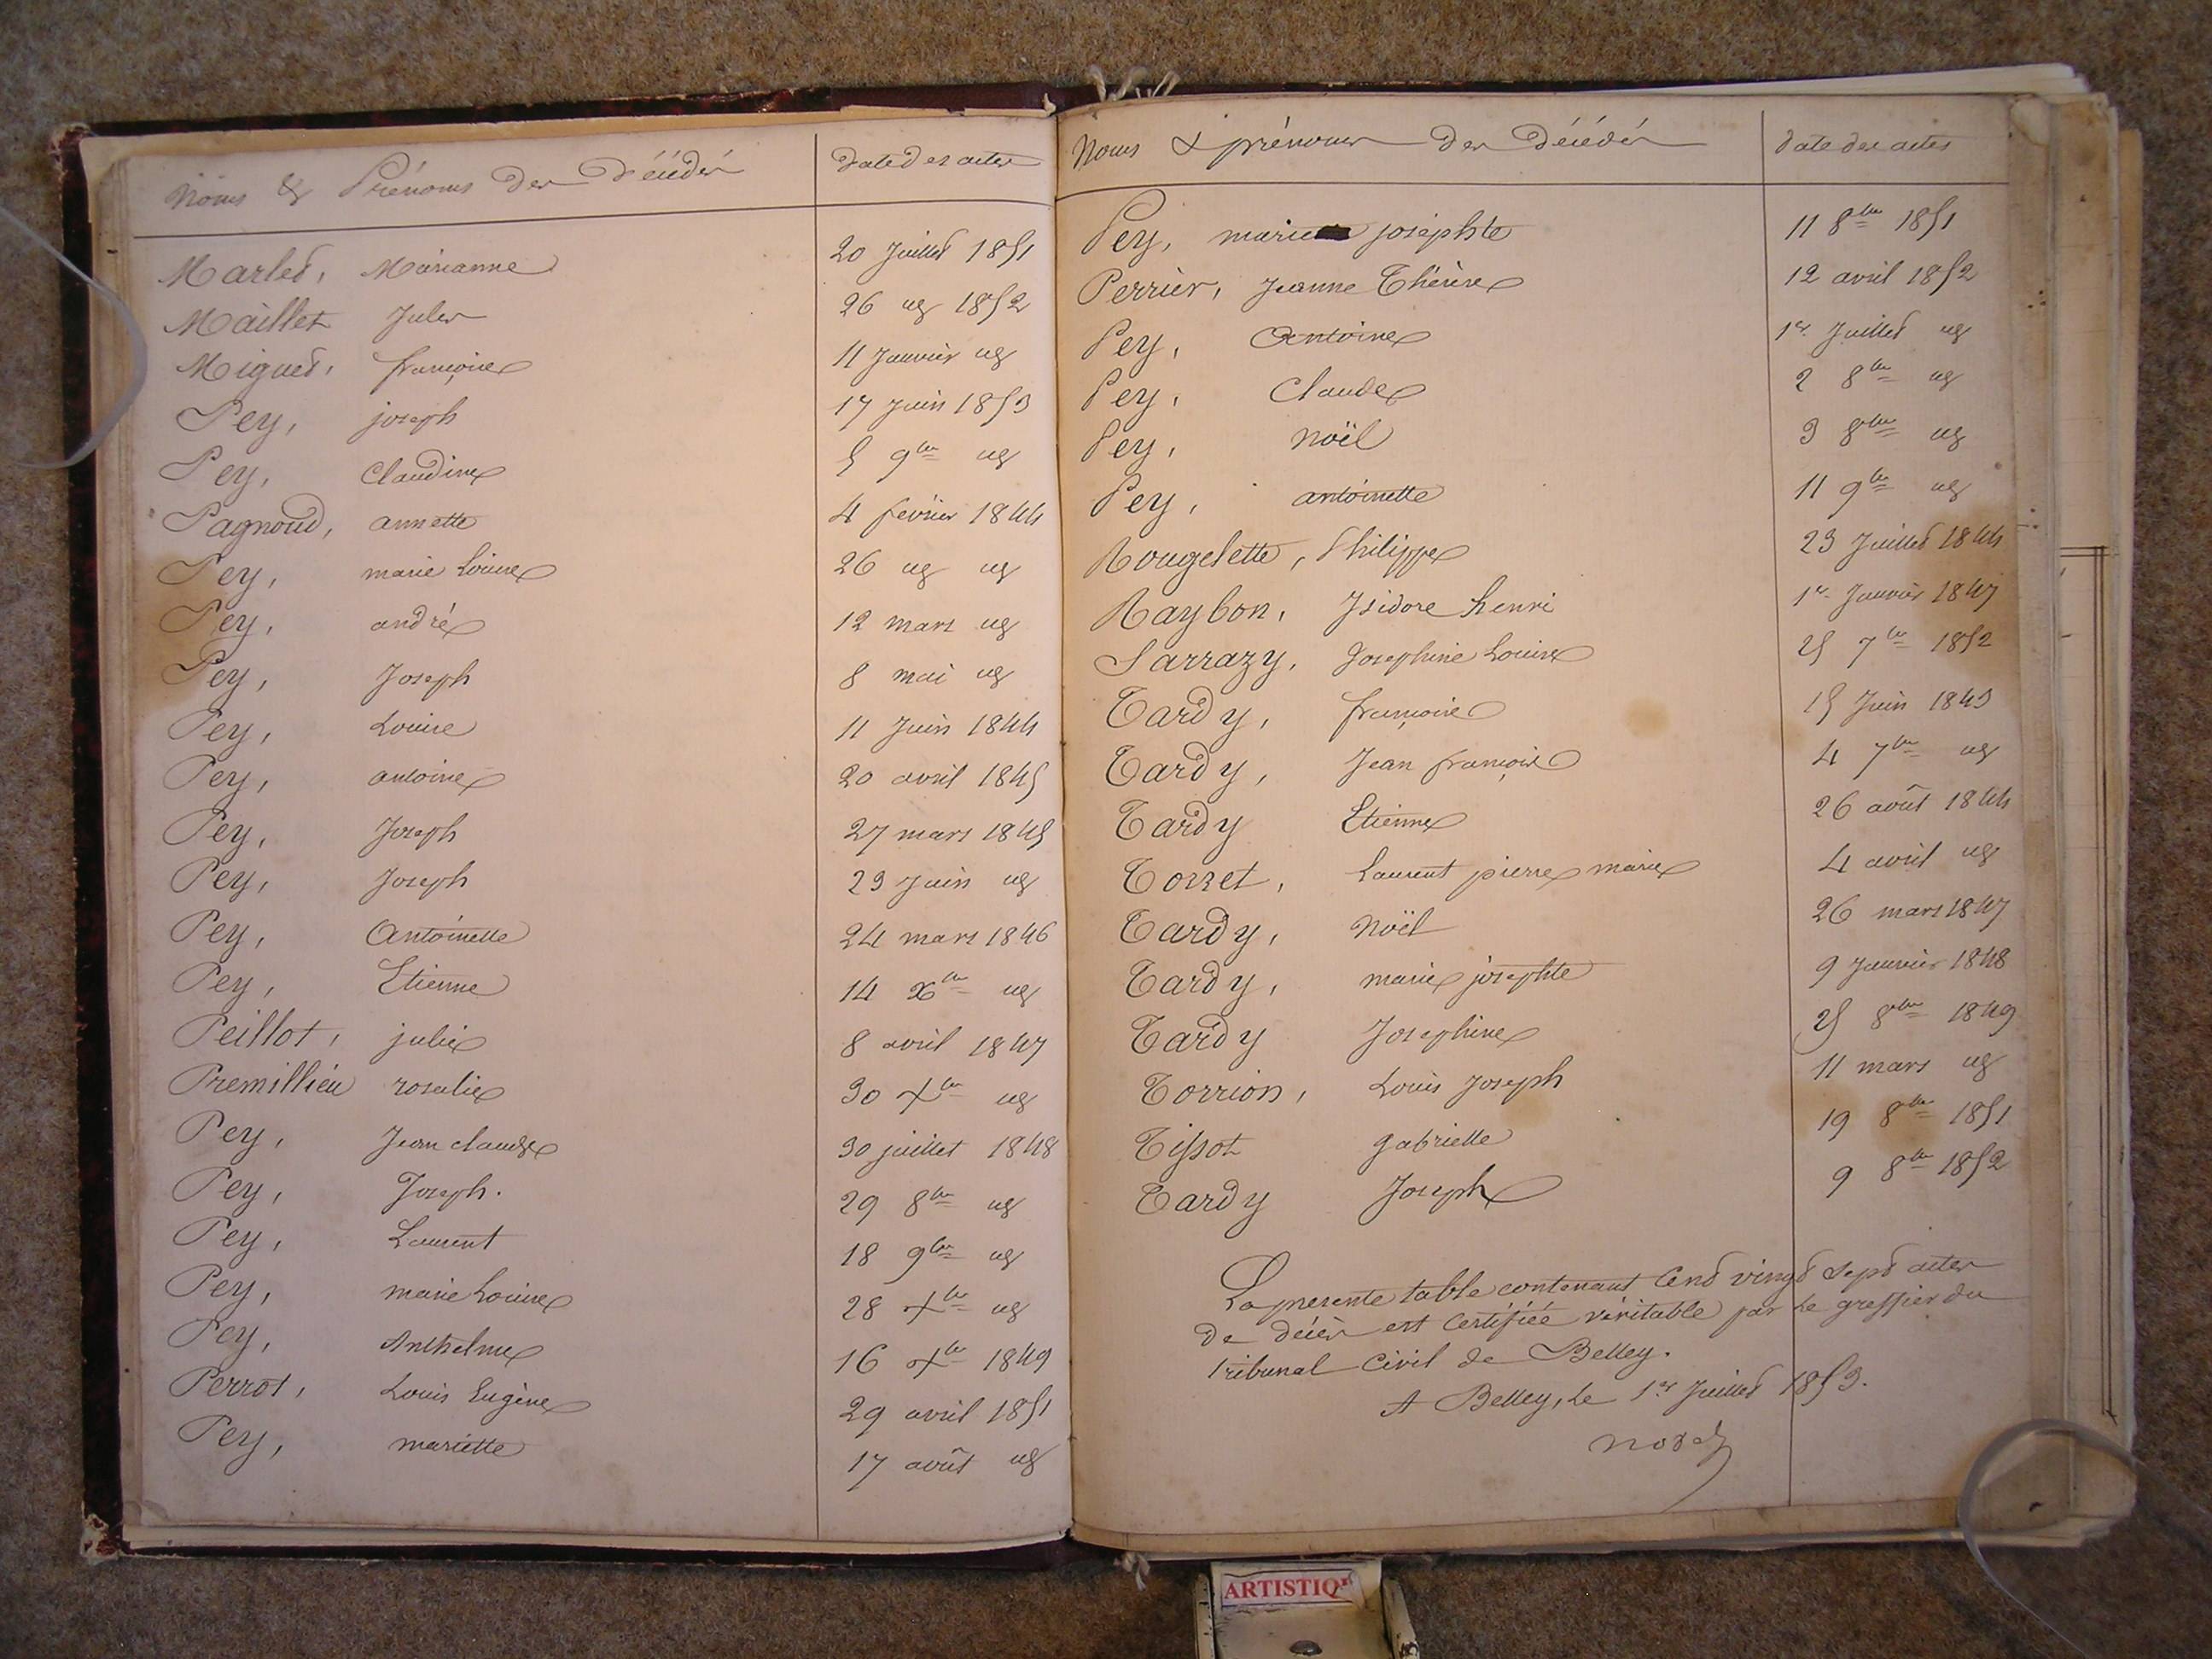 Noms & Prénoms des Décédés Date des actes
Marlet, Marianne 20 Juillet 1851
Maillet Jules 26 id 1852
Miguet, françoise 11 Janvier id
Pey, joseph 17 Juin 1853
Pey, Claudine 5 9bre id
Pagnoud, annette 4 février 1844
Pey, marie Louise 26 id id
Pey, andré 12 mars id
Pey, Joseph 8 mai id
Pey, Louise 11 Juin 1844
Pey, antoine 20 avril 1845
Pey, Joseph 27 mars 1845
Pey, Joseph 23 Juin id
Pey, Antoinette 24 mars 1846
Pey, Etienne 14 Xbre id
Peillot, julie 8 avril 1847
Premillieu rosalie 30 Xbre id
Pey, Jean claude 30 juillet 1848
Pey, Joseph. 29 8bre id
Pey, Laurent 18 9bre id
Pey, marie Louise 28 Xbre id
Pey, Anthelme 16 Xbre 1849
Perrot, Louis Eugène 29 avril 1851
Pey, mariette 17 août id
Noms & prénoms des Décédés date des actes
Pey, marie josephte 11 8bre 1851
Perrier, Jeanne Thérèse 12 avril 1852
Pey, Antoine 1er Juillet id
Pey, Claude 2 8bre id
Pey, Noël 3 8bre id
Pey, antoinette 11 9bre id
Rougelette, Philippe 23 Juillet 1844
Raybon, Isidore henri 1er Janvier 1847
Sarrazy, Josephine Louise 25 7bre 1852
Tardy, françoise 15 Juin 1843
Tardy, Jean françois 4 7bre id
Tardy Etienne 26 août 1844
Torret, Laurent pierre marie 4 avril id
Tardy, Noël 26 mars 1847
Tardy, marie josephte 9 Janvier 1848
Tardy Josephine 25 8bre 1849
Torrion, Louis Joseph 11 mars id
Tissot gabrielle 19 8bre 1851
Tardy Joseph 9 8bre 1852
La presente table contenant Cent vingt sept actes
de décès est Certifiée véritable par le greffier du
tribunal Civil de Belley.
A Belley, le 1er Juillet 1853.
ARTISTIQ